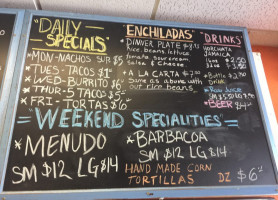 "DAILY SPECIALS"
*MON-NACHOS SUP $5
*TUES-TACOS $1
*WED-BURRITO $6
*THUR-5 TACOS $5
*FRI-TORTAS $6
ENCHILADAS
*DINNER PLATE
Rice beans lettuce
Tomato sour cream
Salsa & cheese
*A LA CARTE
Same as above with
out rice beans
"DRINKS"
HORCHATA
JAMAICA
16oz $2.50
$3.50
Bottle $2
*Raw Juice
SM $5.50 LG
*BEER
=WEEKEND SPECIALITIES=
*MENUDO
SM $12 LG $14
*BARBACOA
SM $12 LG $14
HAND MADE CORN
TORTILLAS DZ $6